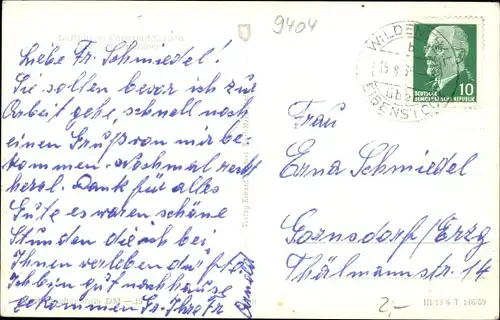 9404
Liebe Fr. Schmiedel!
Sie sollen bevor ich zur
Arbeit gehe, schnell noch
einen Gruß von mir be-
kommen. Nochmal recht
herzl. Dank für alles
Gute es waren schöne
Stunden die ich bei
Ihnen verleben durfte
Ich bin gut nach hause
gekommen Gr. Ihre Fr.
WILDEN
EIBENSTOCK
10
DEUTSCHE
DEMOKRATISCHE REPUBLIK
Frau
Erna Schmiedel
Gornsdorf/Erzg
Thälmannstr. 14
2,-
III/18/6 T 146/59
Verlag Erhard